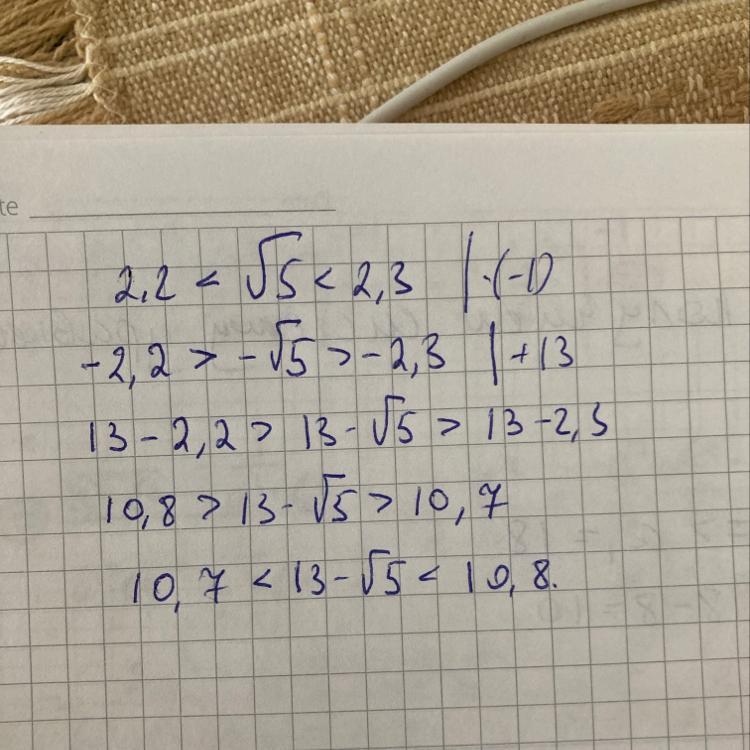 te
2,2 < √5 < 2,3 | ·(-1)
-2,2 > -√5 > -2,3 | +13
13 - 2,2 > 13 - √5 > 13 - 2,3
10,8 > 13 - √5 > 10,7
10,7 < 13 - √5 < 10,8.